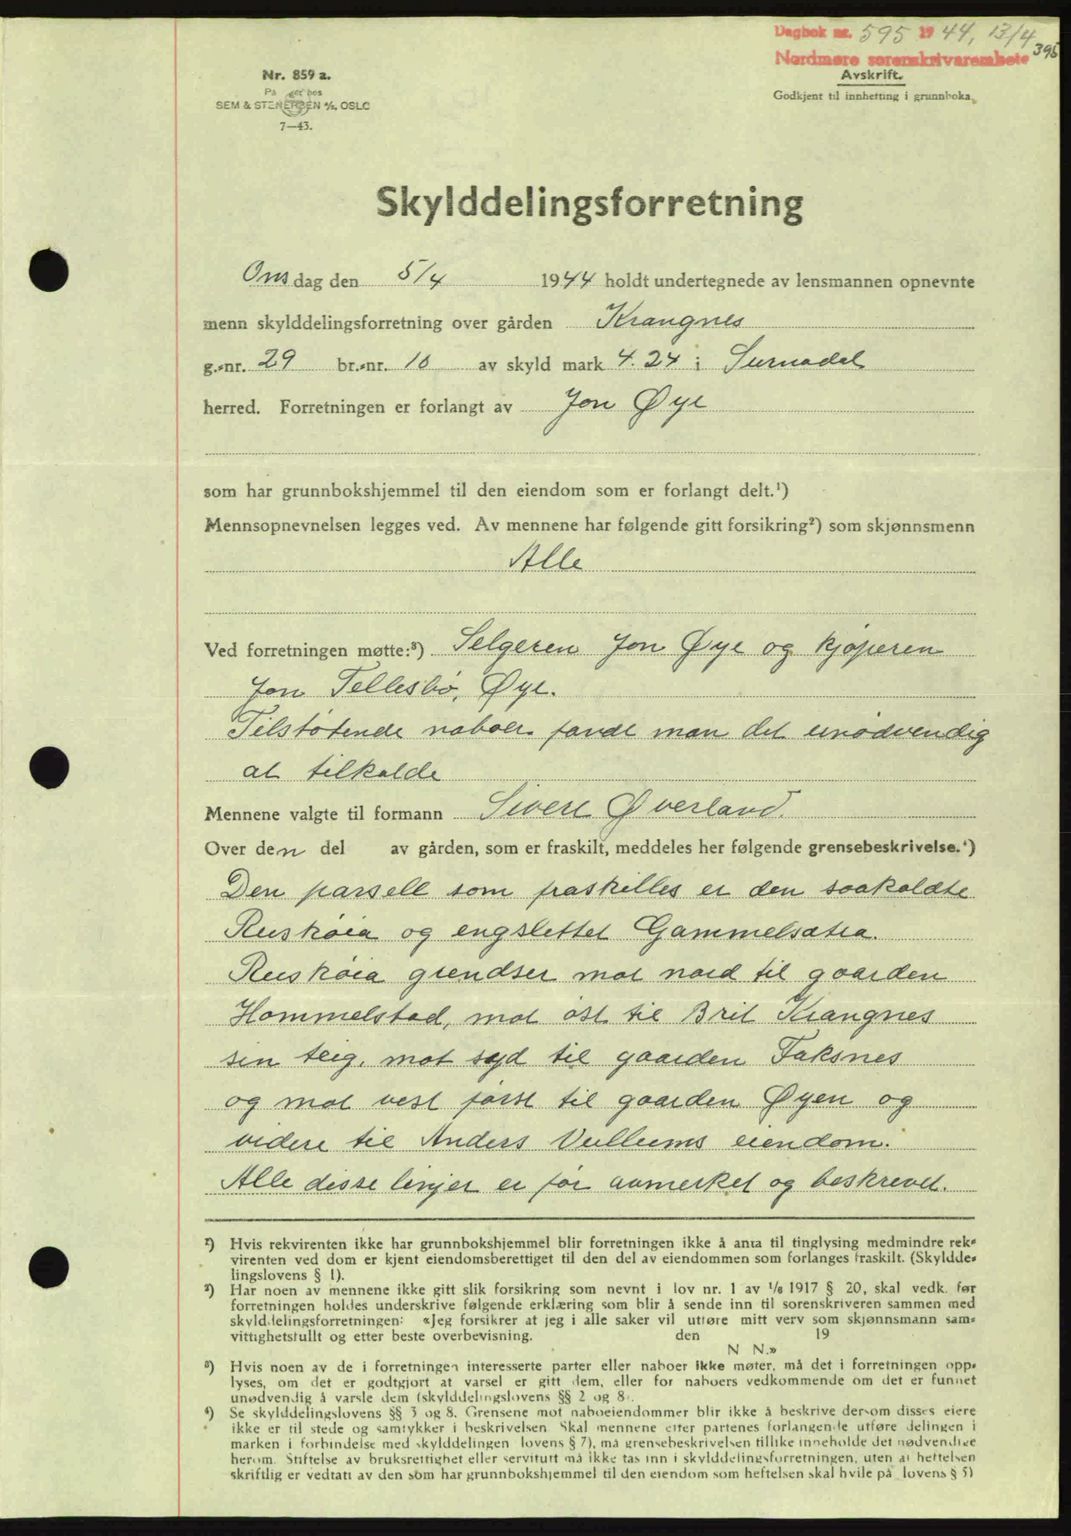 Dagbok nr. 595 1944, 13/4
Nordmøre sorenskrivarembete 395
Avskrift.
Godkjent til innhetting i grunnboka.
Nr. 859 a.
SEM & STENERSEN A/S, OSLO
7—43.
Skylddelingsforretning
Onsdag den 5/4 1944 holdt undertegnede av lensmannen opnevnte
menn skylddelingsforretning over gården Krangnes
g.-nr. 29 br.-nr. 10 av skyld mark 4.24 i Surnadal
herred. Forretningen er forlangt av Jon Øye
som har grunnbokshjemmel til den eiendom som er forlangt delt.¹)
Mennsopnevnelsen legges ved. Av mennene har følgende gitt forsikring²) som skjønnsmenn
Alle
Ved forretningen møtte:³) Selgeren Jon Øye og kjøperen
Jon Tellesbø, Øye.
Tilstøtende naboer fandt man det unødvendig
at tilkalde
Mennene valgte til formann Sivert Øverland.
Over den del av gården, som er fraskilt, meddeles her følgende grensebeskrivelse.⁴)
Den parsell som fraskilles er den saakaldte
Ruskøia og engslettet Gammelsætra.
Ruskøia grendser mot nord til gaarden
Hommelstad, mot øst til Brit Krangnes
sin teig, mot syd til gaarden Faksnes
og mot vest først til gaarden Øyen og
videre til Anders Vullums eiendom.
Alle disse linjer er før avmerket og beskrevet.
¹) Hvis rekvirenten ikke har grunnbokshjemmel blir forretningen ikke å anta til tinglysing medmindre rek-
virenten ved dom er kjent eiendomsberettiget til den del av eiendommen som forlanges fraskilt. (Skyldde-
lingslovens § 1).
²) Har noen av mennene ikke gitt slik forsikring som nevnt i lov nr. 1 av 1/6 1917 § 20, skal vedk. før
forretningen holdes underskrive følgende erklæring som blir å sende inn til sorenskriveren sammen med
skylddelingsforretningen: «Jeg forsikrer at jeg i alle saker vil utføre mitt verv som skjønnsmann sam-
vittighetsfullt og etter beste overbevisning. den 19
N N.»
³) Hvis noen av de i forretningen interesserte parter eller naboer ikke møter, må det i forretningen opp-
lyses, om det er godtgjort at varsel er gitt dem, eller for naboers vedkommende om det er funnet
unødvendig å varsle dem (skylddelingslovens §§ 2 og 8).
⁴) Se skylddelingslovens §§ 3 og 8. Grensene mot naboeiendommer blir ikke å beskrive dersom disses eiere
ikke er til stede og samtykker i beskrivelsen. Skal mennene etter partenes forlangende utføre delingen i
marken i forbindelse med skylddelingen (lovens § 7), må grensebeskrivelsen tillike inneholde det nødvendige
herom. Stiftelse av bruksrettighet eller servitutt må ikke tas inn i skylddelingsforretningen, uten at heftelsen
skriftlig er vedtatt av den som har grunnbokshjemmel til den eiendom som heftelsen skal hvile på (lovens § 5)